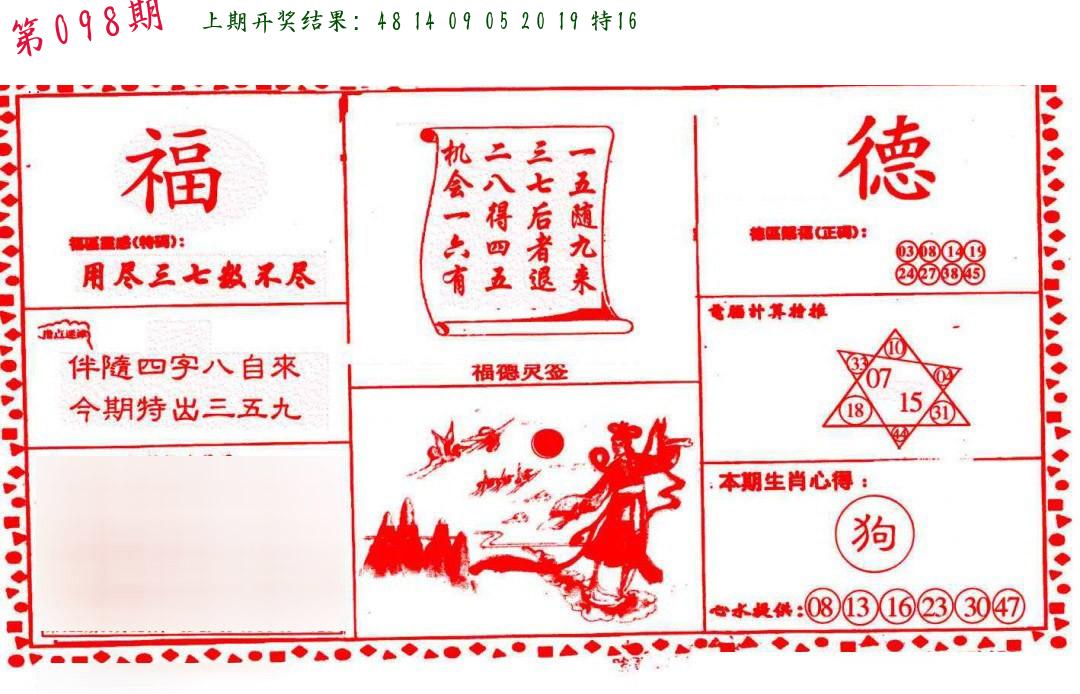 第098期
上期开奖结果：48 14 09 05 20 19 特16
福
德區靈感(特碼)：
用尽三七数不尽
指点迷津
伴隨四字八自來
今期特出三五九
一五随九来
三七后者退
二八得四五
机会一六有
福德灵签
德
德區靈德(正碼)：
03 08 14 19
24 27 38 45
電腦計算榜推
10
33 07 04
18 15 31
44
本期生肖心得：
狗
心水提供：08 13 16 23 30 47